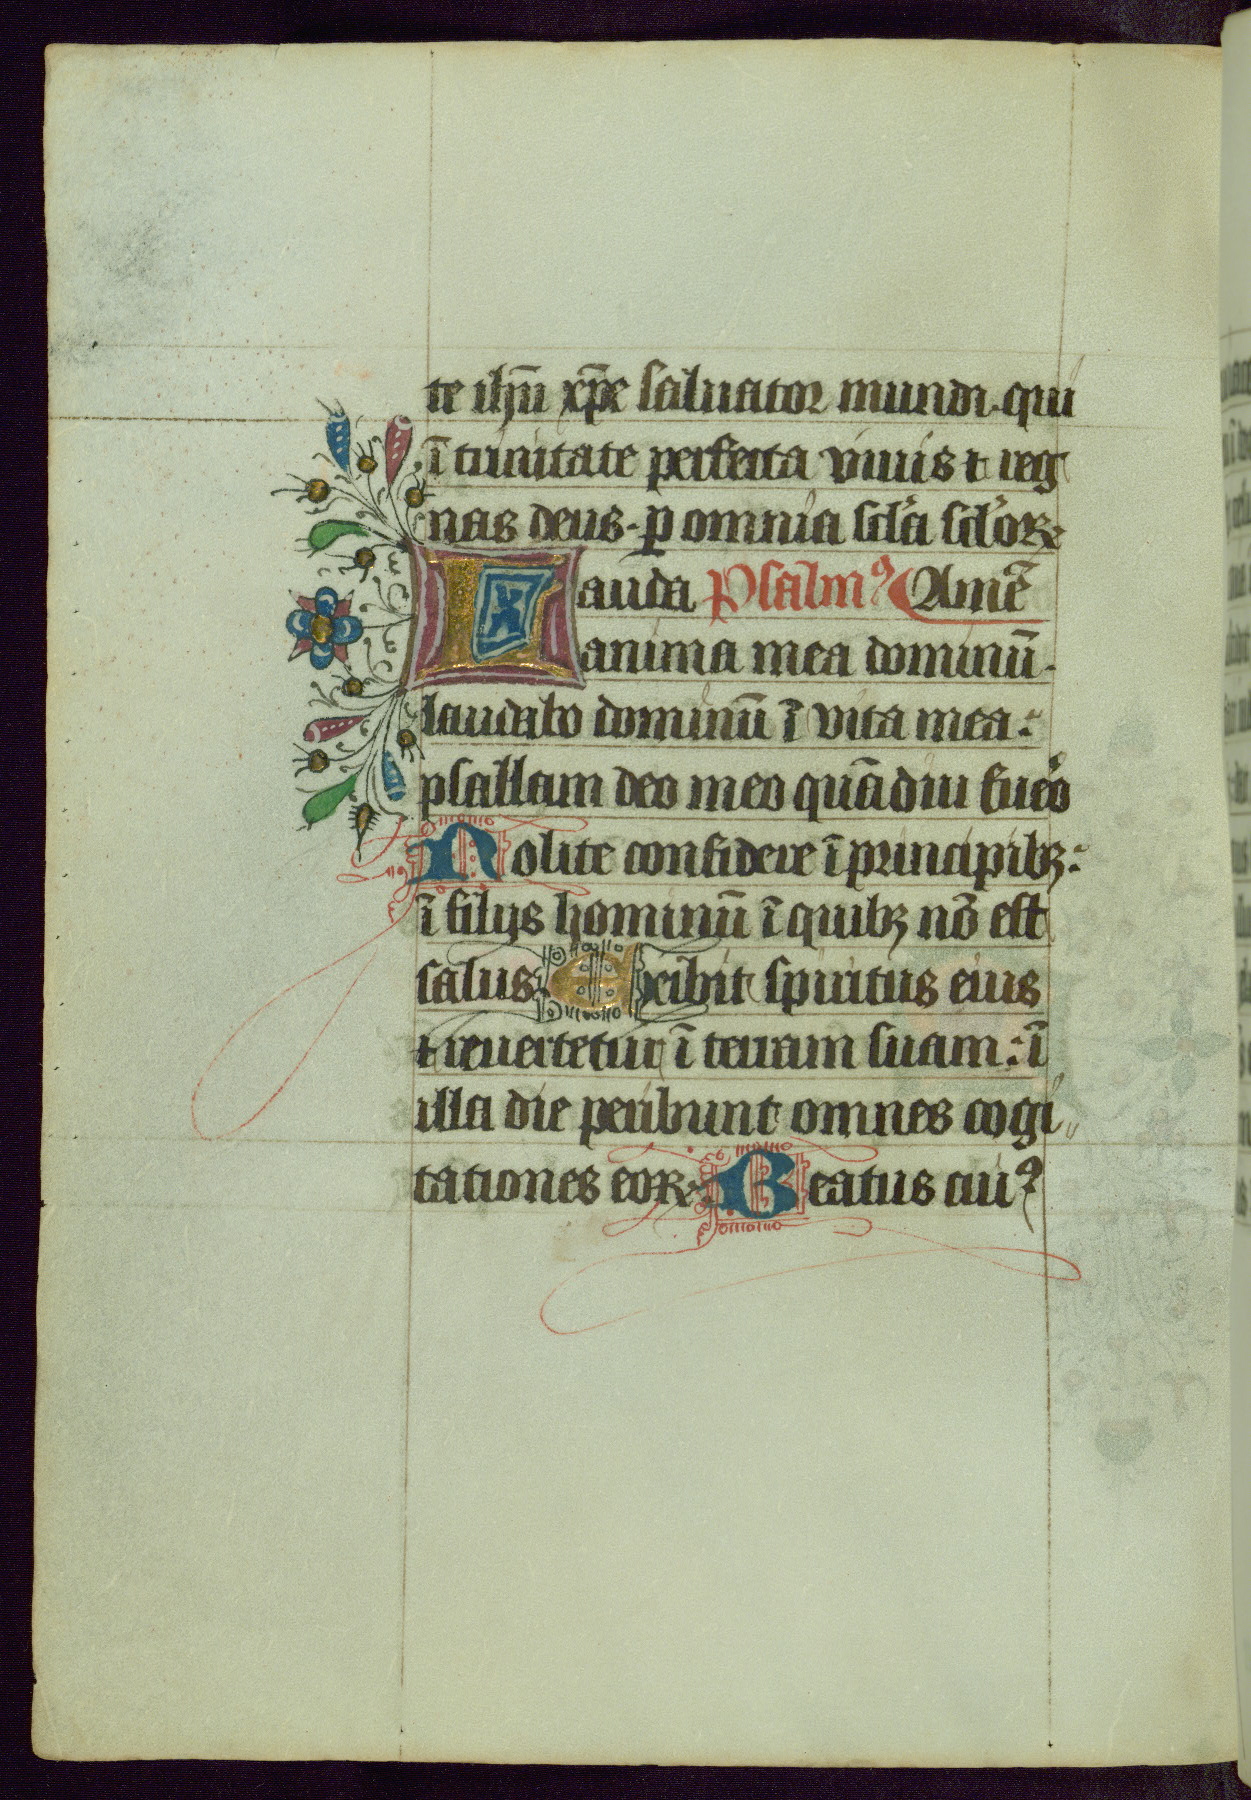 te ihū xp̄e saluator mundi. qui
ī trinitate perfecta viuis ⁊ reg
nas deus. ꝑ omnia scl'a scl'oꝝ
Lauda Psalmꝰ Amē
anima mea dominū.
laudabo dominū ī vita mea:
psallam deo meo quādiu fue'o
Nolite confidere ī principibꝫ:
ī filijs hominū ī quibꝫ nō est
salus Exibit spiritus eius
⁊ reuertetur ī terram suam: ī
illa die peribunt omnes cogi
tationes eoꝝ Beatus cuiꝰ